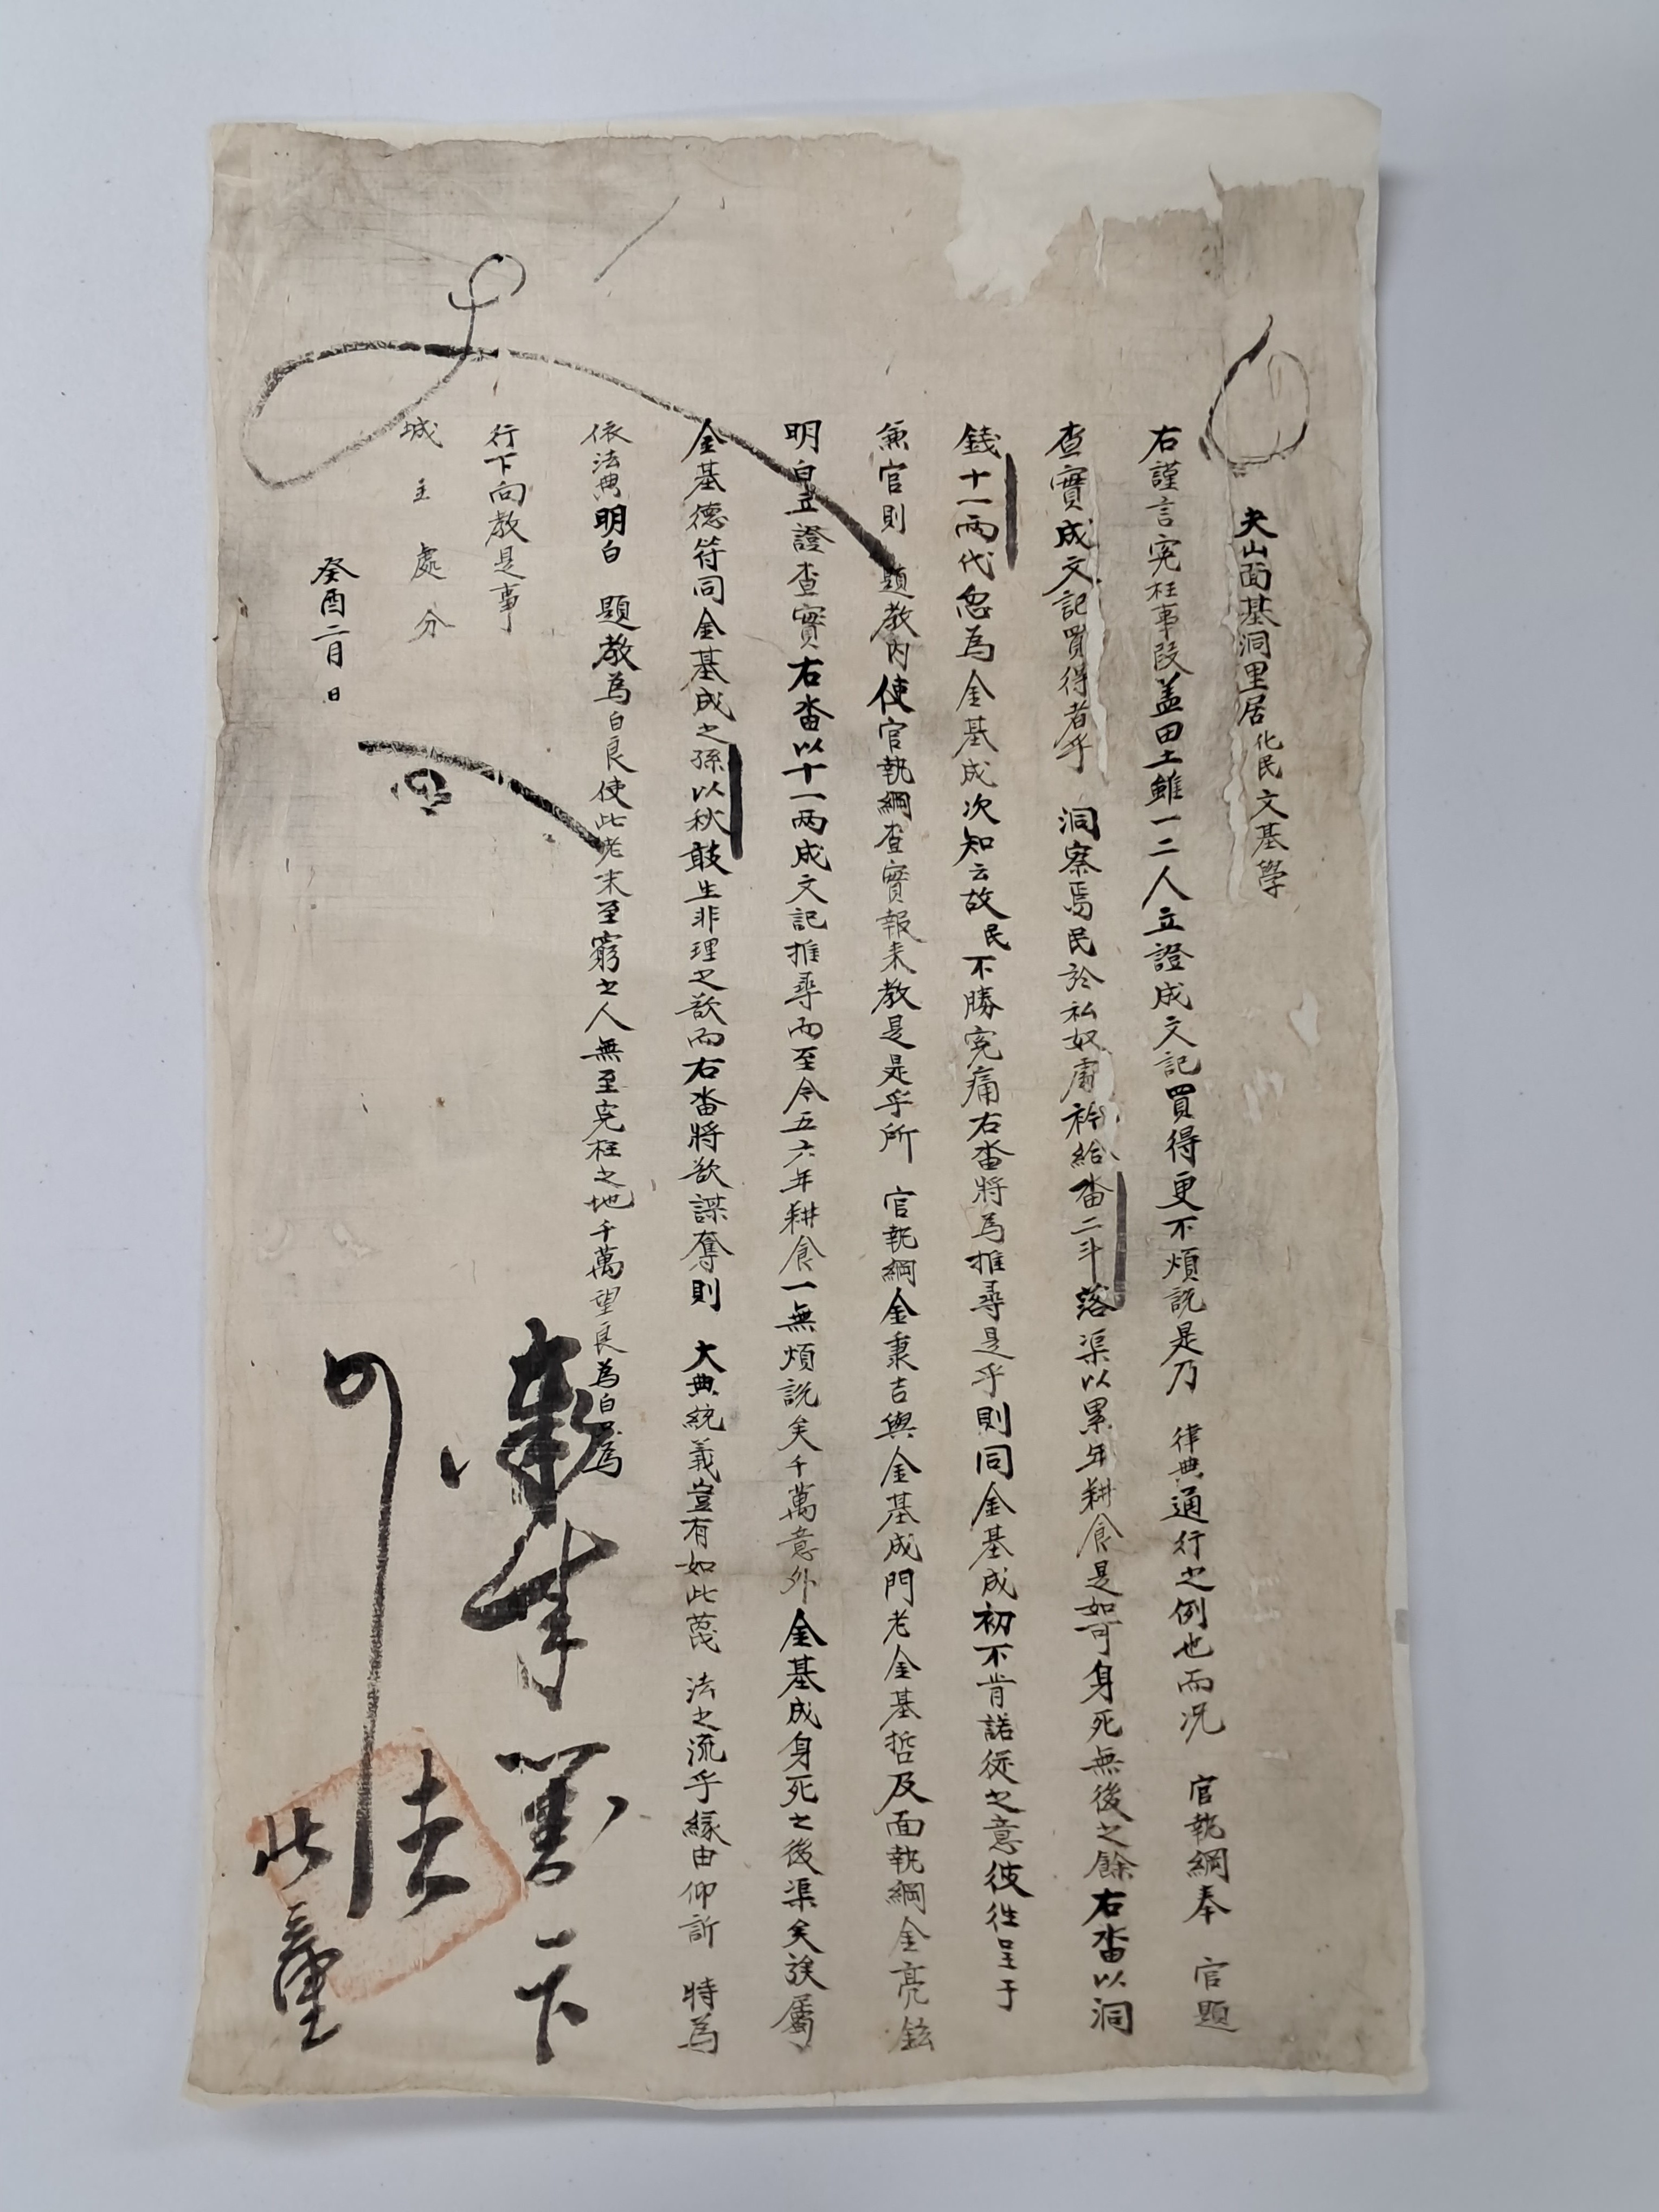 夫山面基洞里居化民文基學
右謹言寃枉事段盖田土雖一二人立證成文記買得更不煩說是乃 律典通行之例也而况 官執綱奉 官題
查實成文記買得者乎 洞察焉民於私奴處衿給畓二斗落渠以累年耕食是如可身死無後之餘右畓以洞
錢十一兩代忽為金基成次知云故民不勝寃痛右畓將為推尋是乎則同金基成初不肯諾從之意彼徃呈于
兼官則 題教內使官執綱查實報来教是是乎所 官執綱金秉吉與金基成門老金基哲及面執綱金亮鉉
明白立證查實右畓以十一兩成文記推尋而至今五六年耕食一無煩說矣千萬意外金基成身死之後渠矣族屬
金基德符同金基成之孫以秋敢生非理之欲而右畓將欲謀奪則 大典統義豈有如此蔑 法之流乎緣由仰訴 特為
依法典明白 題教為白良使此老末至窮之人無至寃枉之地千萬望良為白只為
行下向教是事
城主 處分
癸酉二月 日